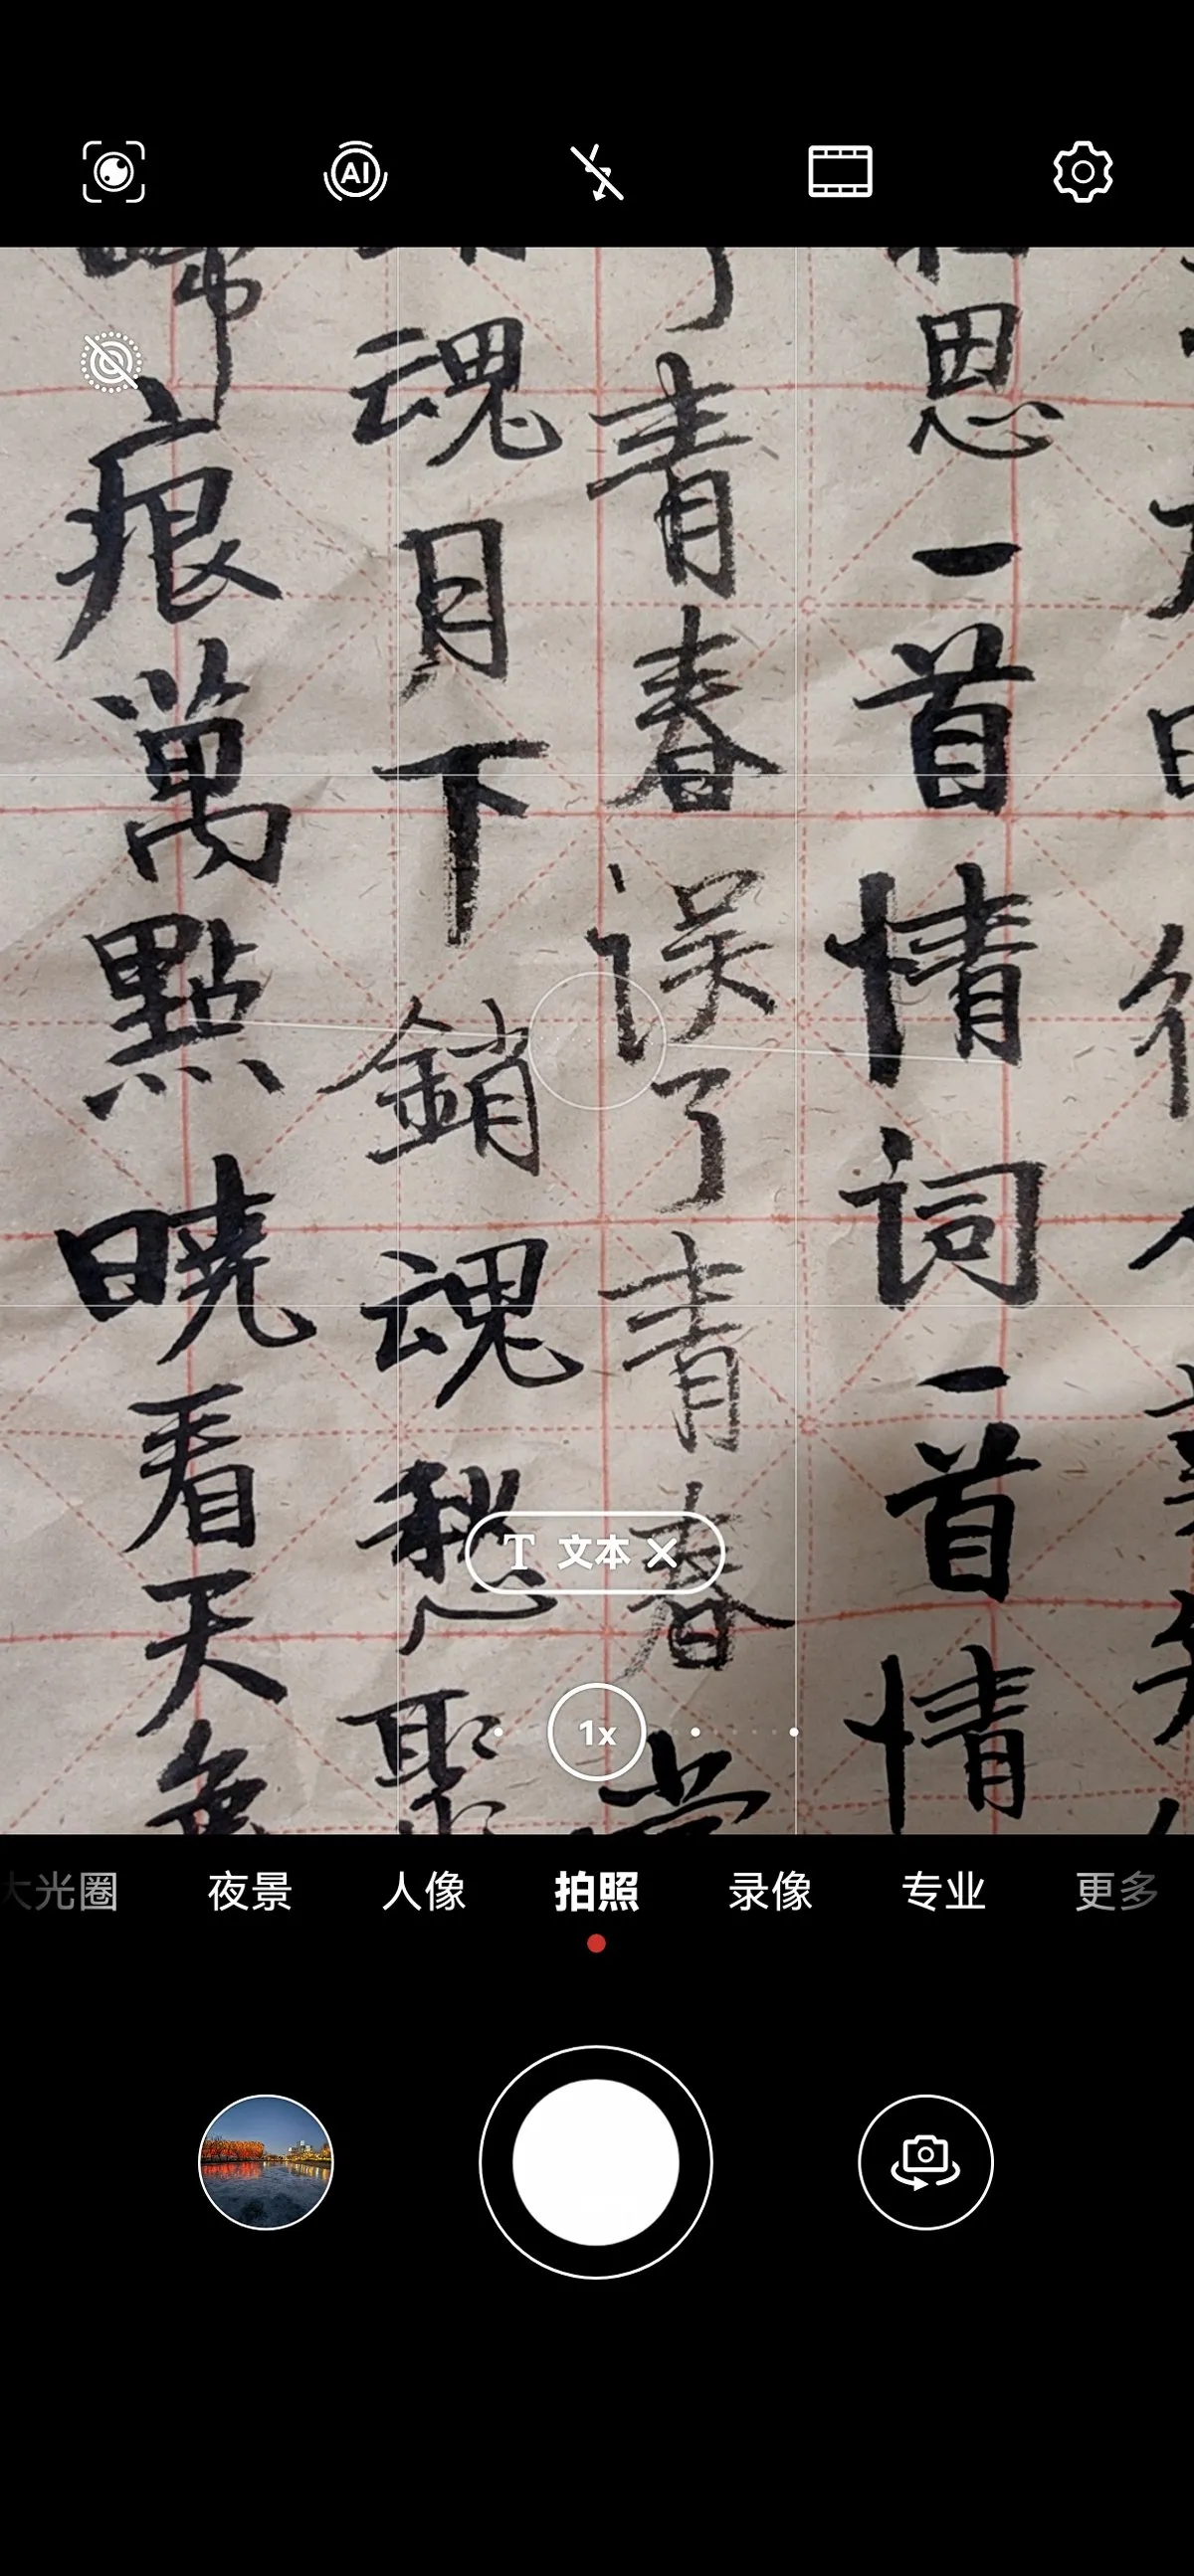 AI
思一首情词一首情
了青春误了青春
魂月下銷魂愁聚
啼痕萬點曉看天色
T 文本 ×
1x
大光圈 夜景 人像 拍照 录像 专业 更多